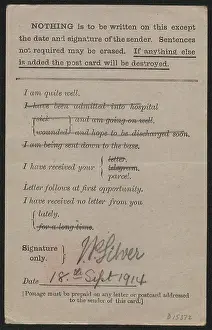 NOTHING is to be written on this except
the date and signature of the sender. Sentences
not required may be erased. If anything else
is added the post card will be destroyed.
I am quite well.
I have been admitted into hospital
sick and am going on well.
wounded and hope to be discharged soon.
I am being sent down to the base.
letter.
I have received your telegram.
parcel.
Letter follows at first opportunity.
I have received no letter from you
lately.
for a long time.
Signature
only.
Date 18th Sept 1914
[Postage must be prepaid on any letter or postcard addressed
to the sender of this card.]